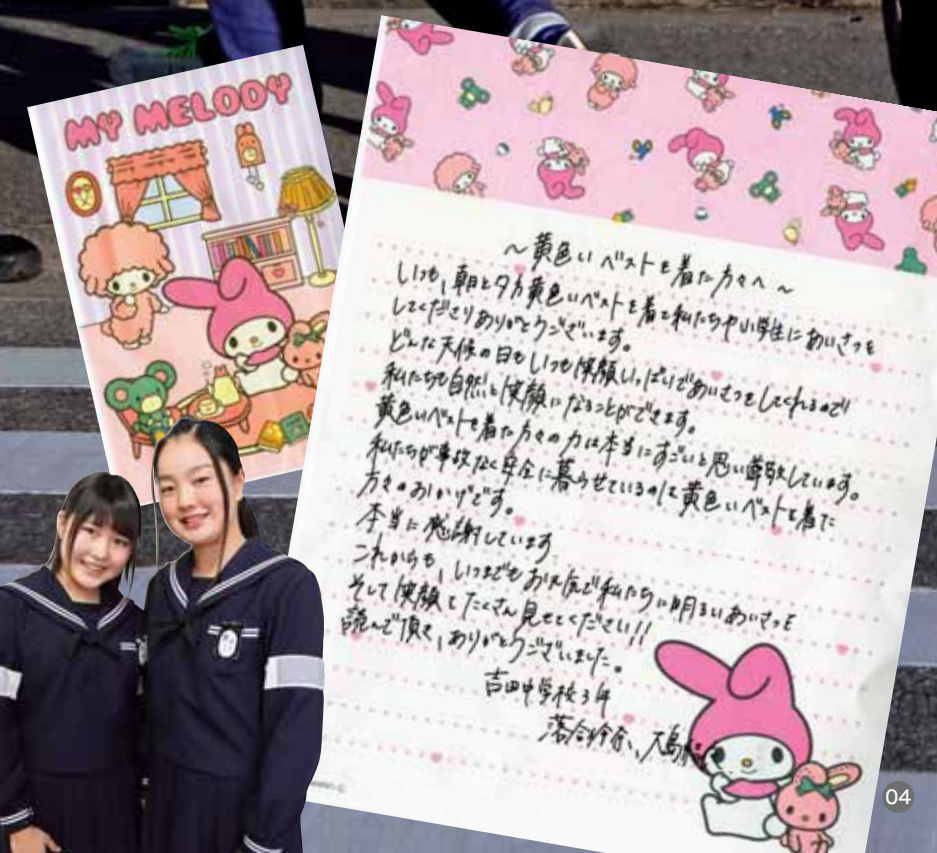 MY MELODY
～黄色いベストを着た方々へ～
いつも、朝と夕方黄色いベストを着て私たちや小学生にあいさつを
してくださりありがとうございます。
どんな天候の日もいつも笑顔いっぱいであいさつをしてくれるので
私たちも自然と笑顔になることができます。
黄色いベストを着た方々の力は本当にすごいと思い尊敬しています。
私たちが事故なく安全に暮らせているのは黄色いベストを着た
方々のおかげです。
本当に感謝しています
これからも、いつまでもお元気で私たちに明るいあいさつを
そして笑顔をたくさん見せてください!!
読んで頂き、ありがとうございました。
吉田中学校3年
落合 、大島
04